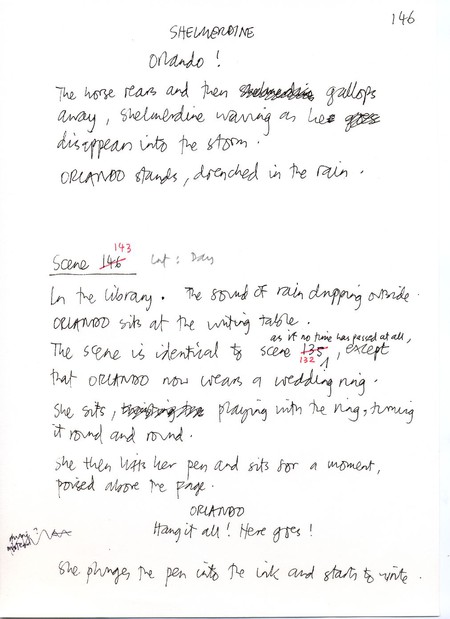 146
SHELMERDINE
Orlando !
The horse rears and then gallops
away, Shelmerdine waving as he
disappears into the storm.
ORLANDO stands, drenched in the rain.
Scene 146 143 Int : Day
In the library. The sound of rain dripping outside.
ORLANDO sits at the writing table.
as if no time has passed at all,
The scene is identical to scene 135 132, except
that ORLANDO now wears a wedding ring.
She sits, playing with the ring, turning
it round and round.
She then lifts her pen and sits for a moment,
poised above the page.
ORLANDO
Hang it all! Here goes!
She plunges the pen into the ink and starts to write.